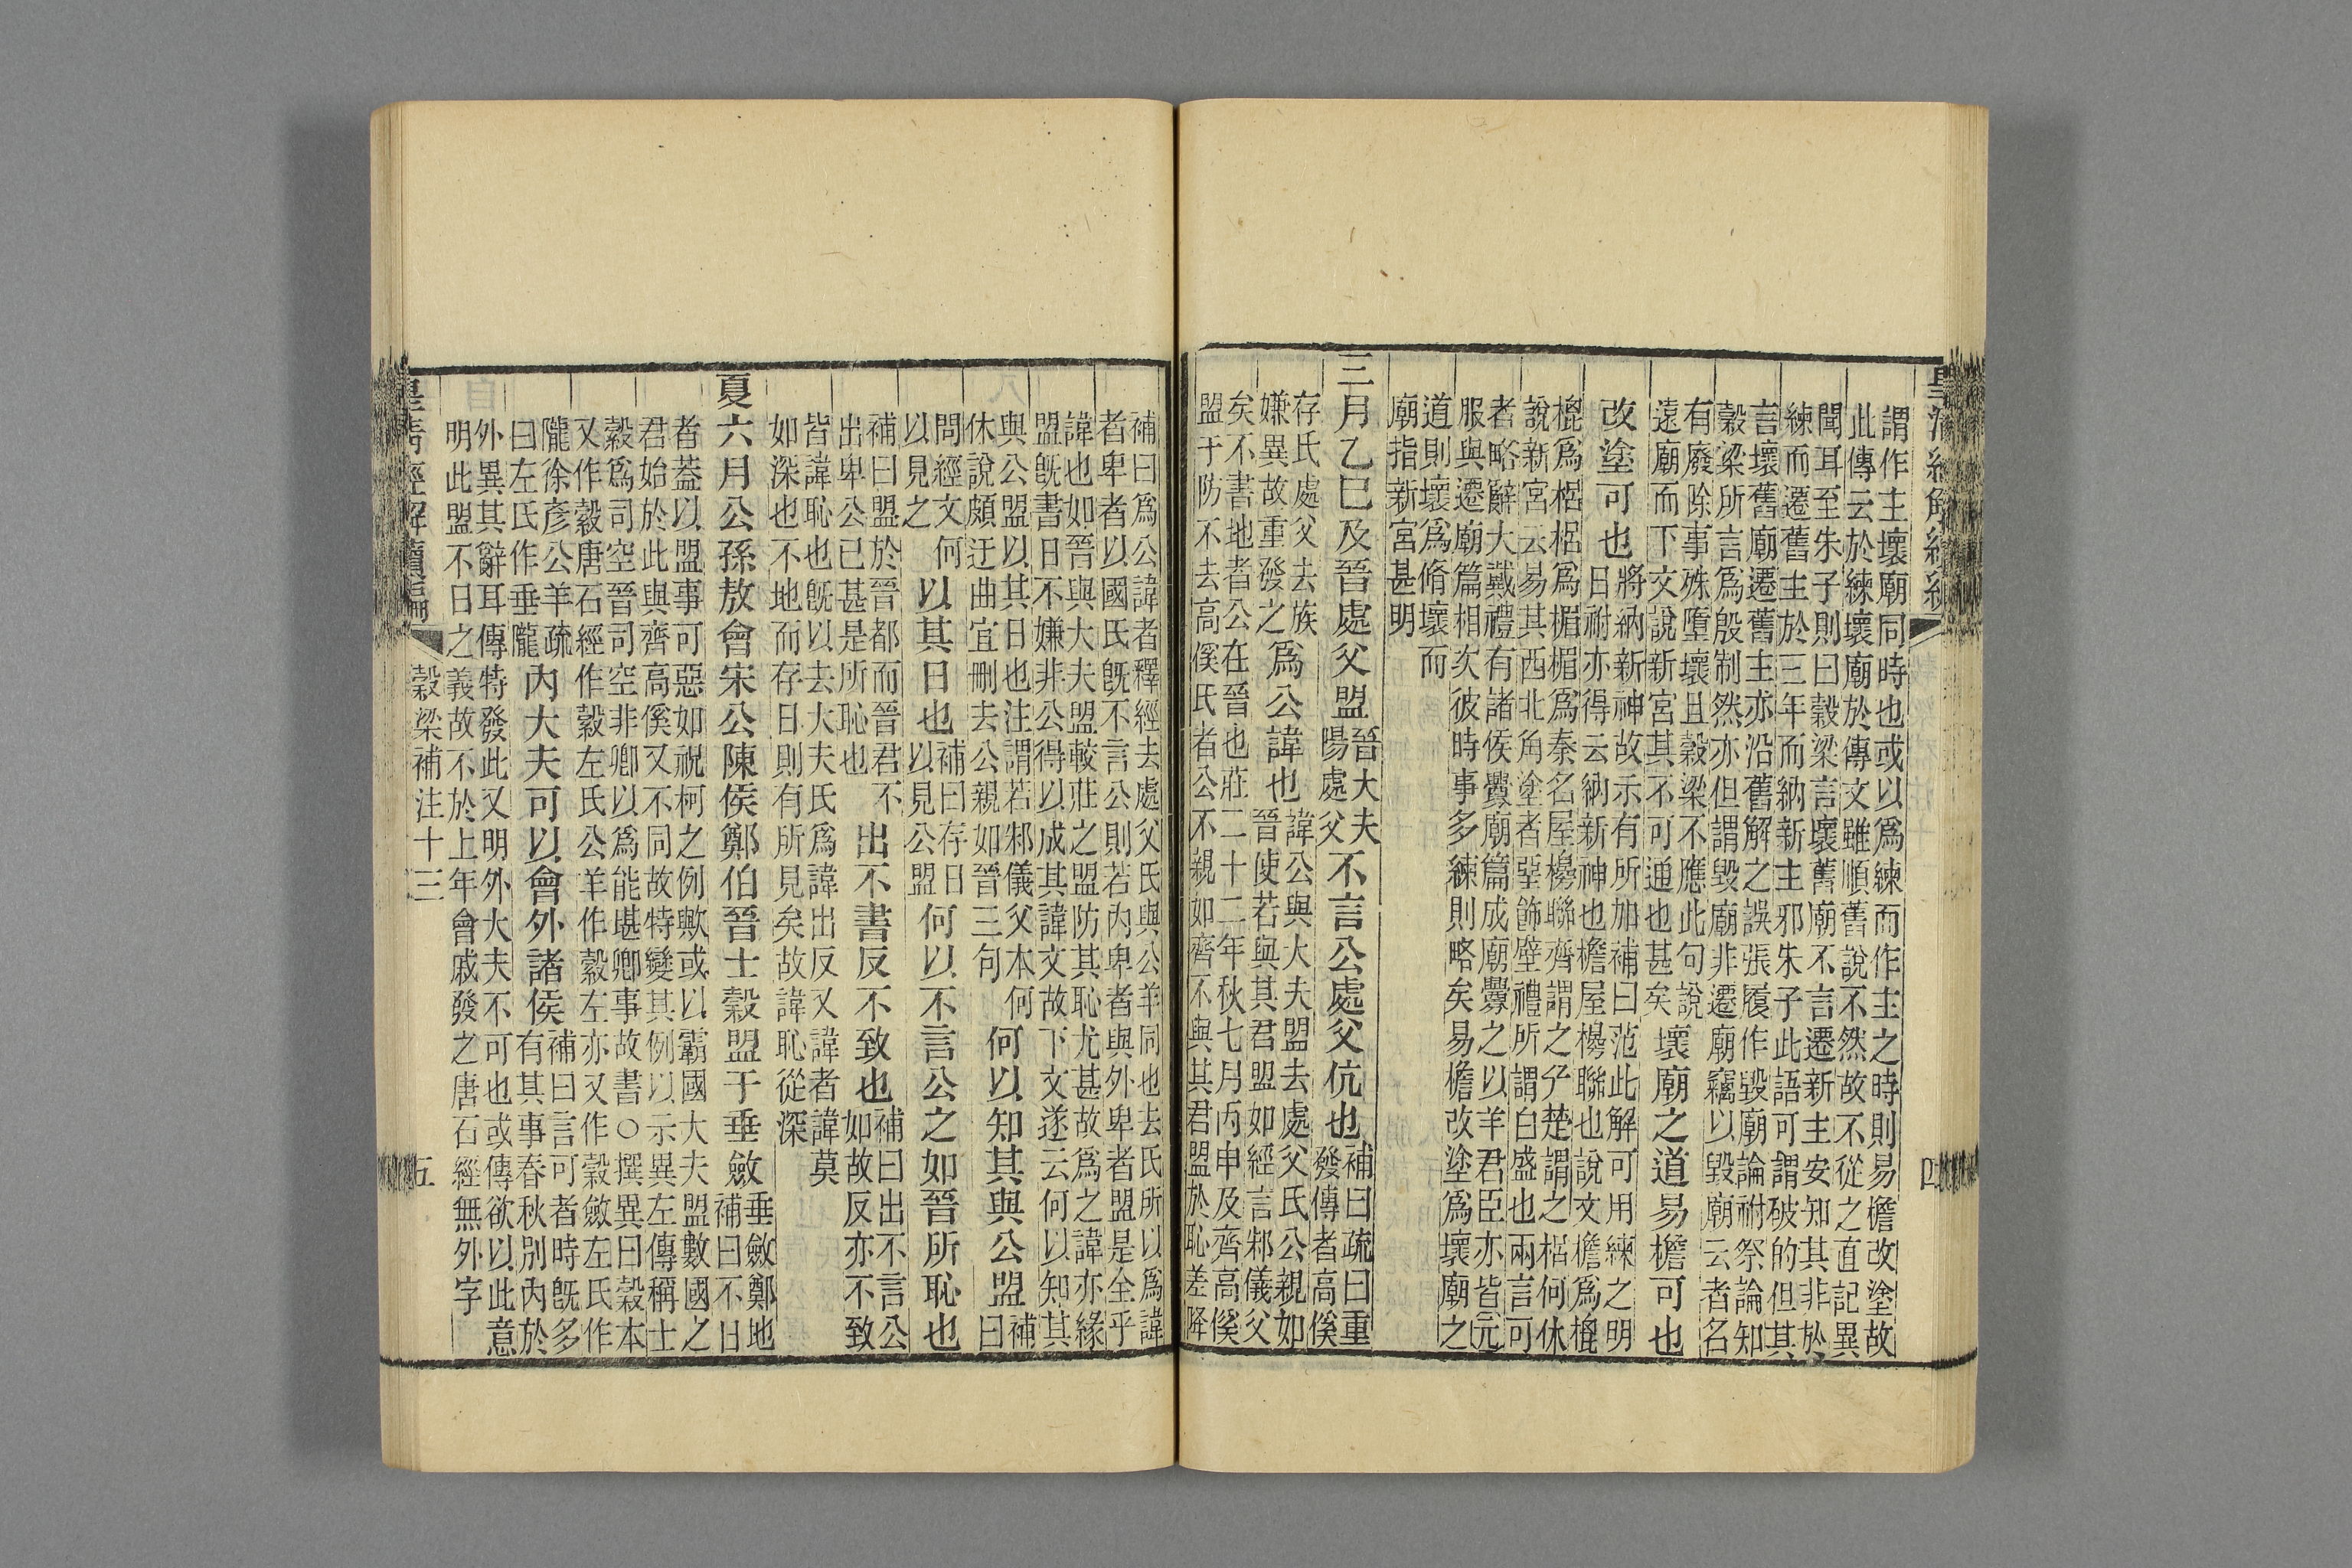 皇清經解續編
四
謂作主壞廟同時也或以爲練而作主之時則易檐改塗故
此傳云於練壞廟於傳文雖順舊說不然故不從之直記異
聞耳至朱子則曰穀梁言壞舊廟不言遷新主安知其非於
練而遷舊主於三年而納新主邪朱子此語可謂破的但其
言壞舊廟遷舊主亦沿舊解之誤張履作毀廟論祔祭論知
穀梁所言爲殷制然亦但謂毀廟非遷廟竊以毀廟云者名
有廢除事殊墮壞且穀梁不應此句說
遠廟而下文說新宮其不可通也甚矣
壞廟之道易檐可也
改塗可也
將納新神故示有所加補曰范此解可用練之明
日祔亦得云納新神也檐屋㮰聯也說文檐爲㮰
㮰爲梠梠爲楣楣爲秦名屋㮰聯齊謂之戶楚謂之梠何休
說新宮云易其西北角塗者堊飾壁禮所謂白盛也兩言可
者略辭大戴禮有諸侯釁廟篇成廟釁之以羊君臣亦皆元
服與遷廟篇相次彼時事多練則略矣易檐改塗爲壞廟之
道則壞爲脩壞而
廟指新宮甚明
三月乙巳及晉處父盟
晉大夫
陽處父
不言公處父伉也
補曰疏曰重
發傳者高傒
存氏處父去族
嫌異故重發之
爲公諱也
諱公與大夫盟去處父氏公親如
晉使若與其君盟如經言邾儀父
矣不書地者公在晉也莊二十二年秋七月丙申及齊高傒
盟于防不去高傒氏者公不親如齊不與其君盟於恥差降
補曰爲公諱者釋經去處父氏與公羊同也去氏所以爲諱
者卑者以國氏既不言公則若內卑者與外卑者盟是全乎
諱也如晉與大夫盟較莊之盟防其恥尤甚故爲之諱亦緣
盟既書日不嫌非公得以成其諱文故下文遂云何以知其
與公盟以其日也注謂若邾儀父本何
休說頗迂曲宜刪去公親如晉三句
何以知其與公盟
補
曰
問經文何
以見之
以其日也
補曰存日
以見公盟
何以不言公之如晉所恥也
補曰盟於晉都而晉君不
出卑公已甚是所恥也
出不書反不致也
補曰出不言公
如故反亦不致
皆諱恥也既以去大夫氏爲諱出反又諱者諱莫
如深也不地而存日則有所見矣故諱恥從深
夏六月公孫敖會宋公陳侯鄭伯晉士穀盟于垂斂
垂斂鄭地
補曰不日
者蓋以盟事可惡如祝柯之例歟或以霸國大夫盟數國之
君始於此與齊高傒又不同故特變其例以示異左傳稱士
穀爲司空晉司空非卿以爲能堪卿事故書○撰異曰穀本
又作縠唐石經作縠左氏公羊作縠左亦又作穀斂左氏作
隴徐彥公羊疏
曰左氏作垂隴
內大夫可以會外諸侯
補曰言可者時既多
有其事春秋別內於
外異其辭耳傳特發此又明外大夫不可也或傳欲以此意
明此盟不日之義故不於上年會戚發之唐石經無外字
皇清經解續編
穀梁補注十三
五